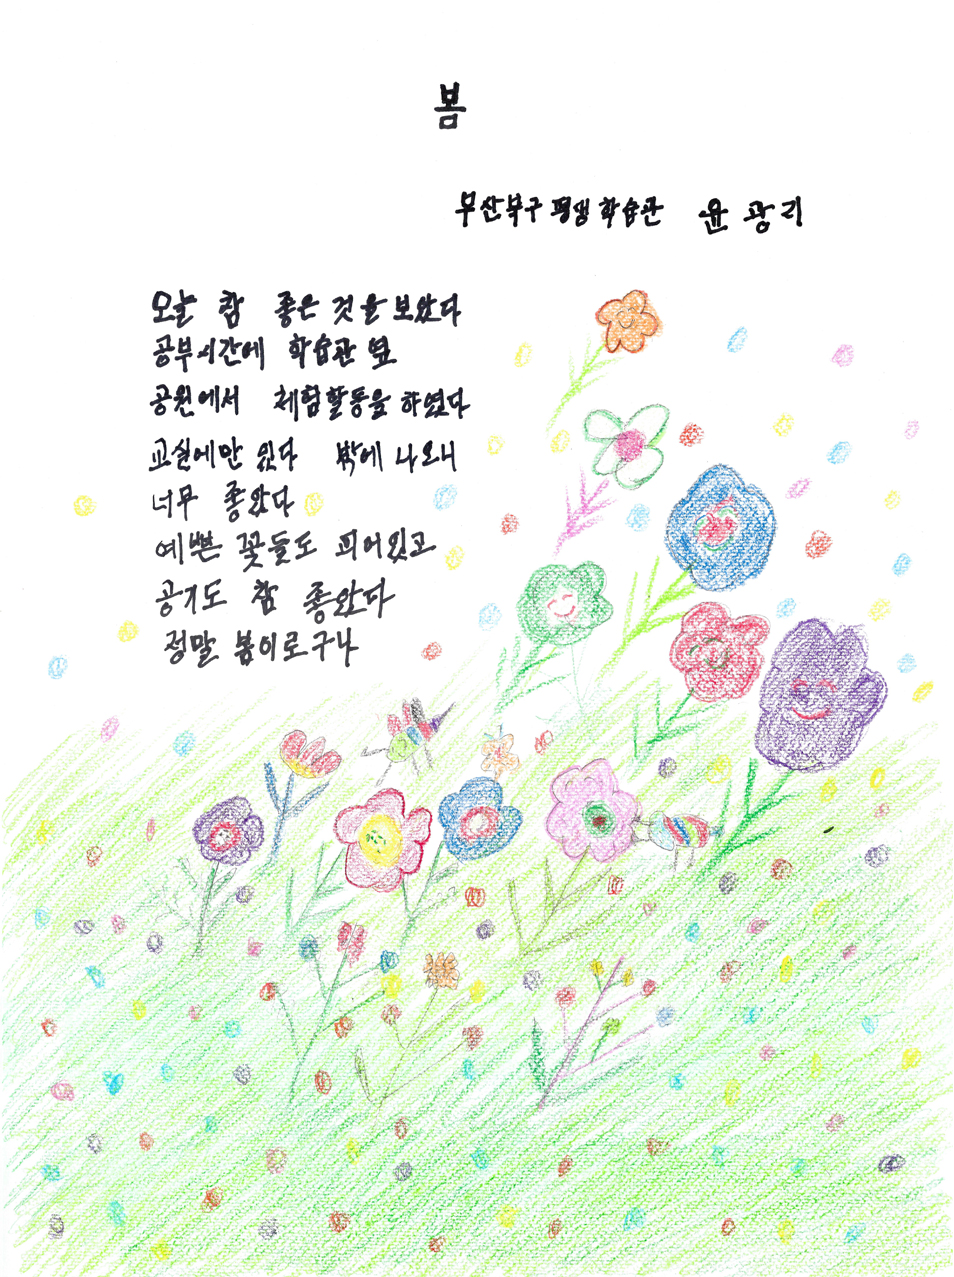 봄
부산북구 평생학습관 윤광리
오늘 참 좋은 것을 보았다
공부시간에 학습관 옆
공원에서 체험활동을 하였다
교실에만 있다 밖에 나오니
너무 좋았다
예쁜 꽃들도 피어있고
공기도 참 좋았다
정말 봄이로구나